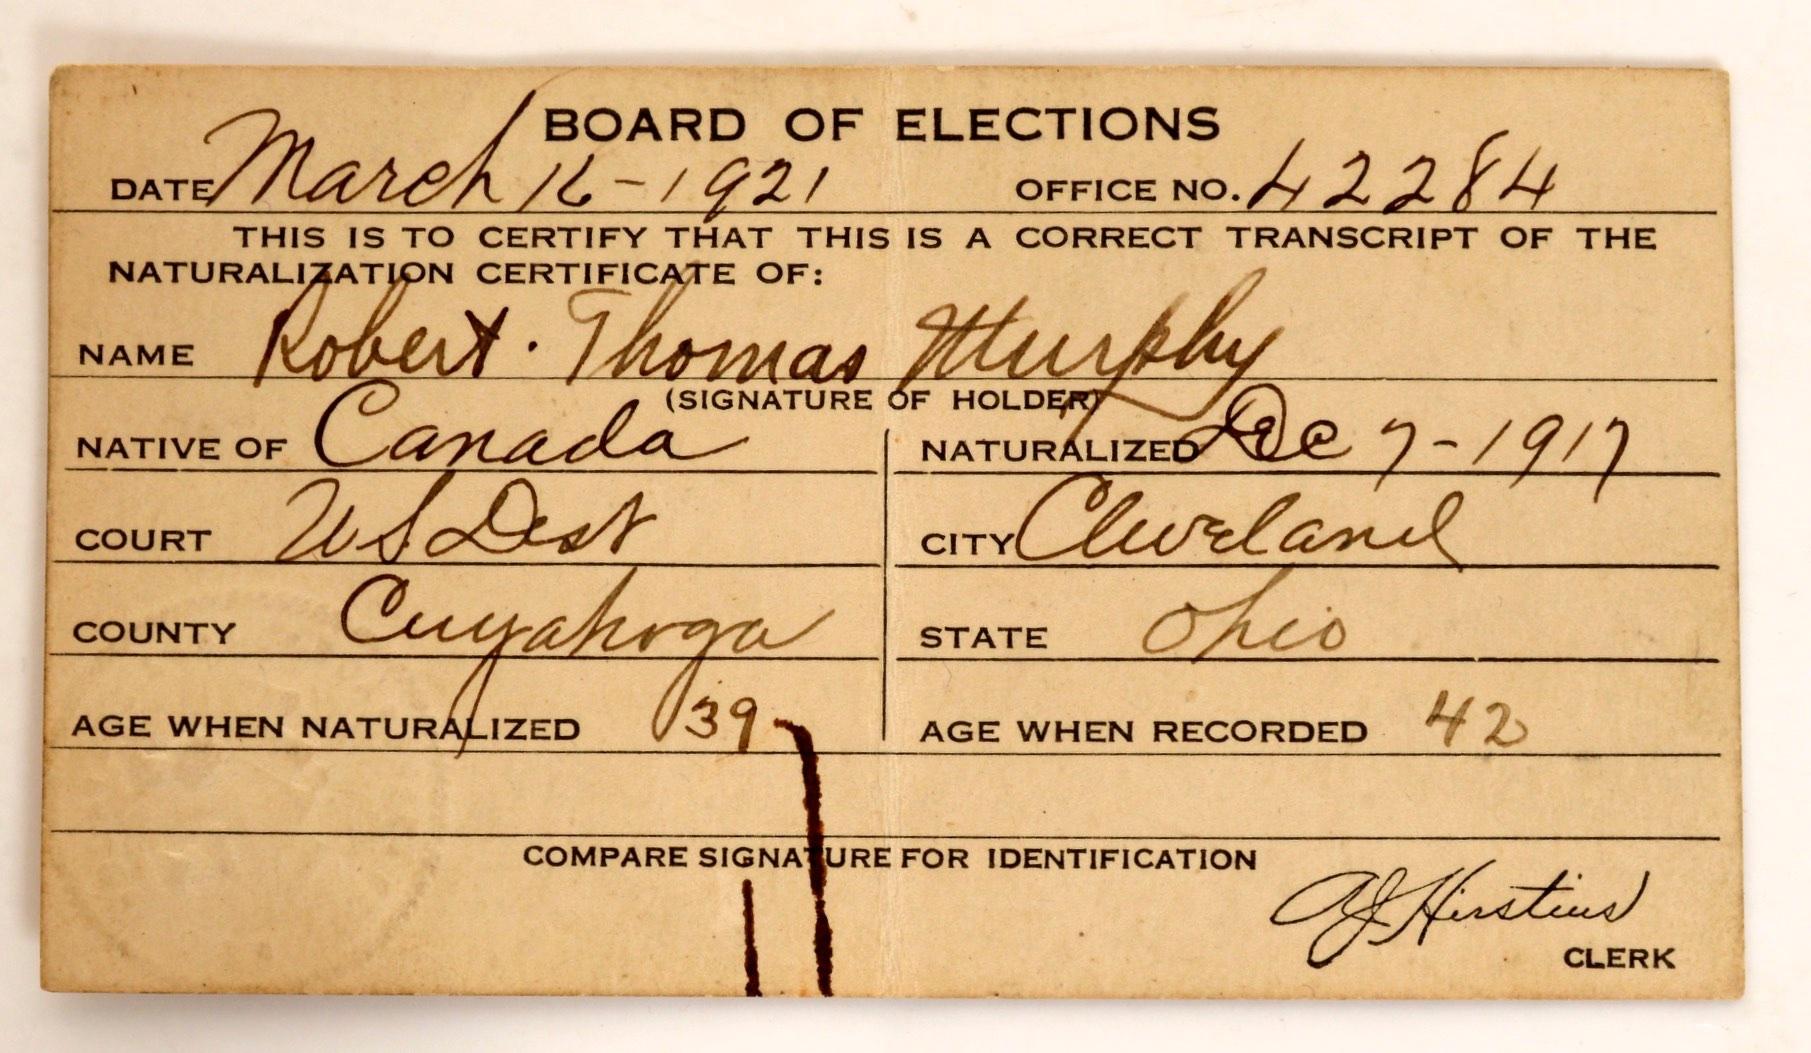 BOARD OF ELECTIONS
DATE March 16-1921 OFFICE NO. 42284
THIS IS TO CERTIFY THAT THIS IS A CORRECT TRANSCRIPT OF THE
NATURALIZATION CERTIFICATE OF:
NAME Robert. Thomas Murphy
(SIGNATURE OF HOLDER)
NATIVE OF Canada NATURALIZED Dec 7-1917
COURT US Dist CITY Cleveland
COUNTY Cuyahoga STATE Ohio
AGE WHEN NATURALIZED 39 AGE WHEN RECORDED 42
COMPARE SIGNATURE FOR IDENTIFICATION
AJ Hirstius
CLERK